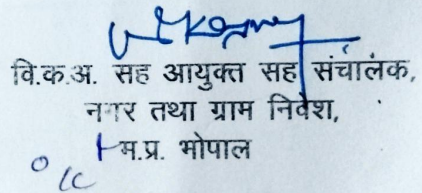 वि.क.अ. सह आयुक्त सह संचालक,
नगर तथा ग्राम निवेश,
म.प्र. भोपाल
o/c